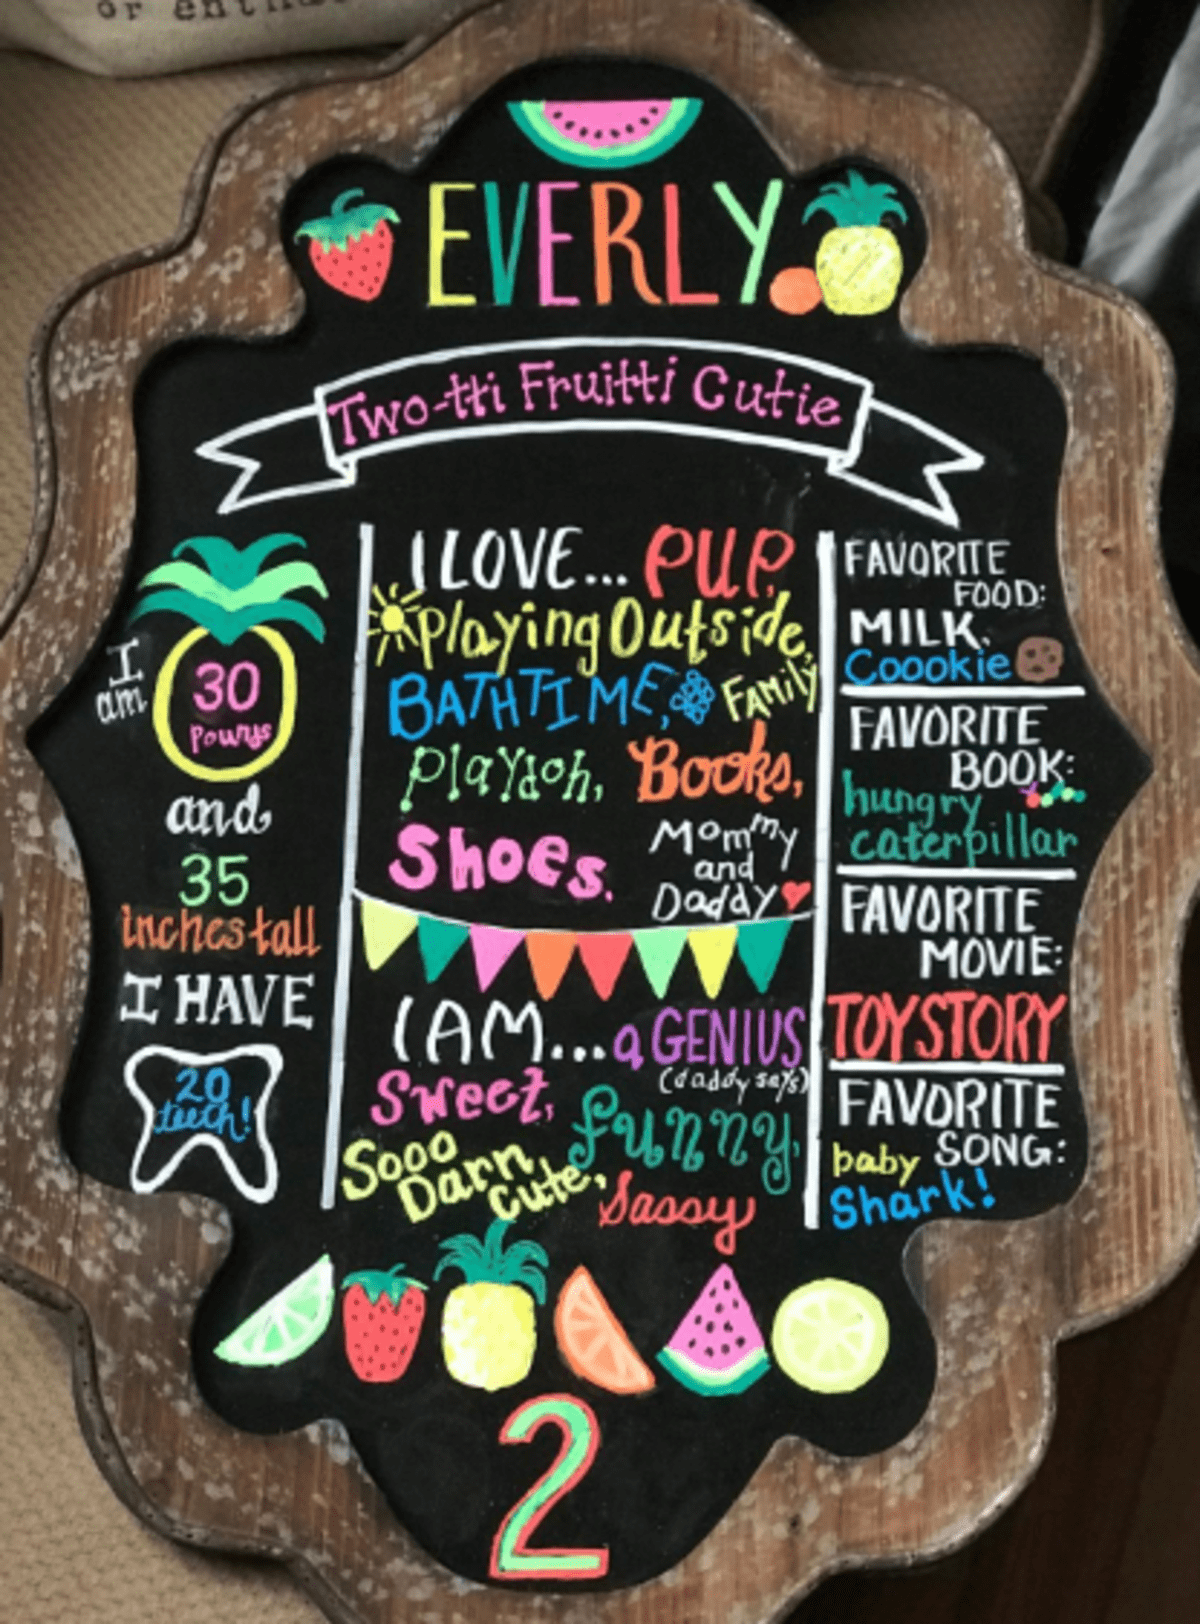 or enth
EVERLY
Two-tti Fruitti Cutie
I am
30
Pounds
and
35
inches tall
I HAVE
20
teeth!
I LOVE... PUP,
Playing Outside,
BATHTIME, FAMILY
Playdoh, Books,
Shoes.
Mommy
and
Daddy
I AM... a GENIUS
(daddy says)
Sweet,
funny,
Sooo
Darn
Cute,
Sassy
FAVORITE
FOOD:
MILK,
Coookie
FAVORITE
BOOK:
hungry
caterpillar
FAVORITE
MOVIE:
TOYSTORY
FAVORITE
SONG:
baby
Shark!
2